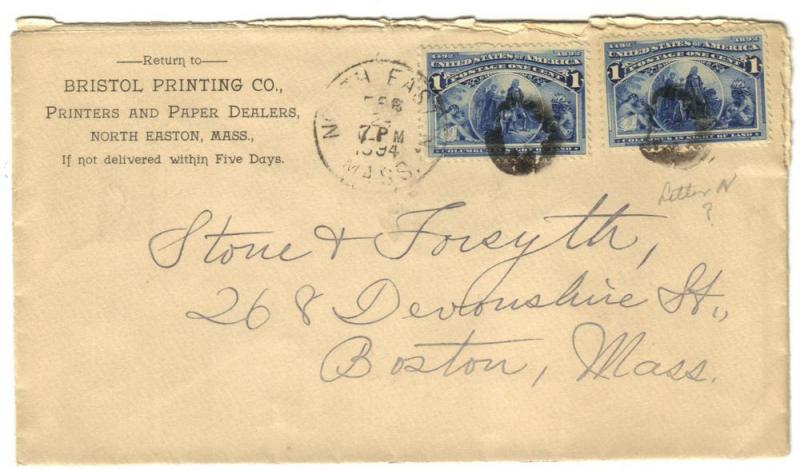 Return to
BRISTOL PRINTING CO.,
PRINTERS AND PAPER DEALERS,
NORTH EASTON, MASS.,
If not delivered within Five Days.
NORTH EAST
FEB
7 PM
1894
MASS.
1492 1892
UNITED STATES OF AMERICA
POSTAGE ONE CENT
1 1
COLUMBUS IN SIGHT OF LAND
1492 1892
UNITED STATES OF AMERICA
POSTAGE ONE CENT
1 1
COLUMBUS IN SIGHT OF LAND
Letter N
?
Stone & Forsyth,
268 Devonshire St.,
Boston, Mass.